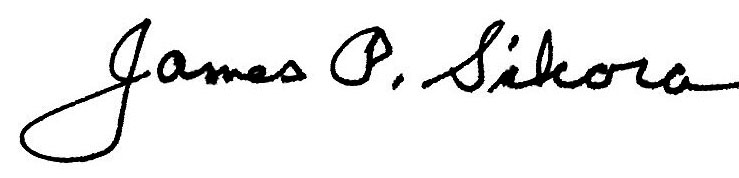 James P. Sikora